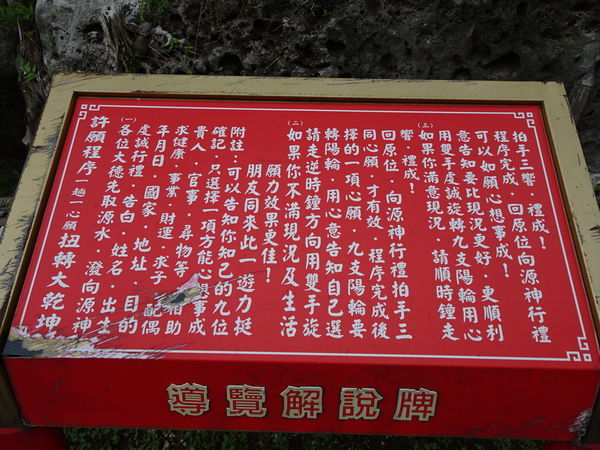 許願程序 一趟一心願 扭轉大乾坤
(一)各位大德先取源水 潑向源神
虔誠行禮．告白．姓名．出生
年月日．國家．地址．目的
求健康．事業．財運．求子．配偶
貴人．官事．尋物等 相助
確記．只選擇一項方能心想事成
附註：可以告知你知己的九位
朋友同來此一遊力挺
願力效果更佳！
(二)如果你不滿現況及生活
請走逆時鐘方向用雙手旋
轉陽輪．用心意告知自己選
擇的一項心願．九支陽輪要
同心願．才有效．程序完成後
回原位．向源神行禮拍手三
響．禮成！
(三)如果你滿意現況．請順時鐘走
用雙手虔誠旋轉九支陽輪用心
意告知要比現況更好．更順利
可以如願心想事成！
程序完成．回原位向源神行禮
拍手三響．禮成！
導覽解說牌